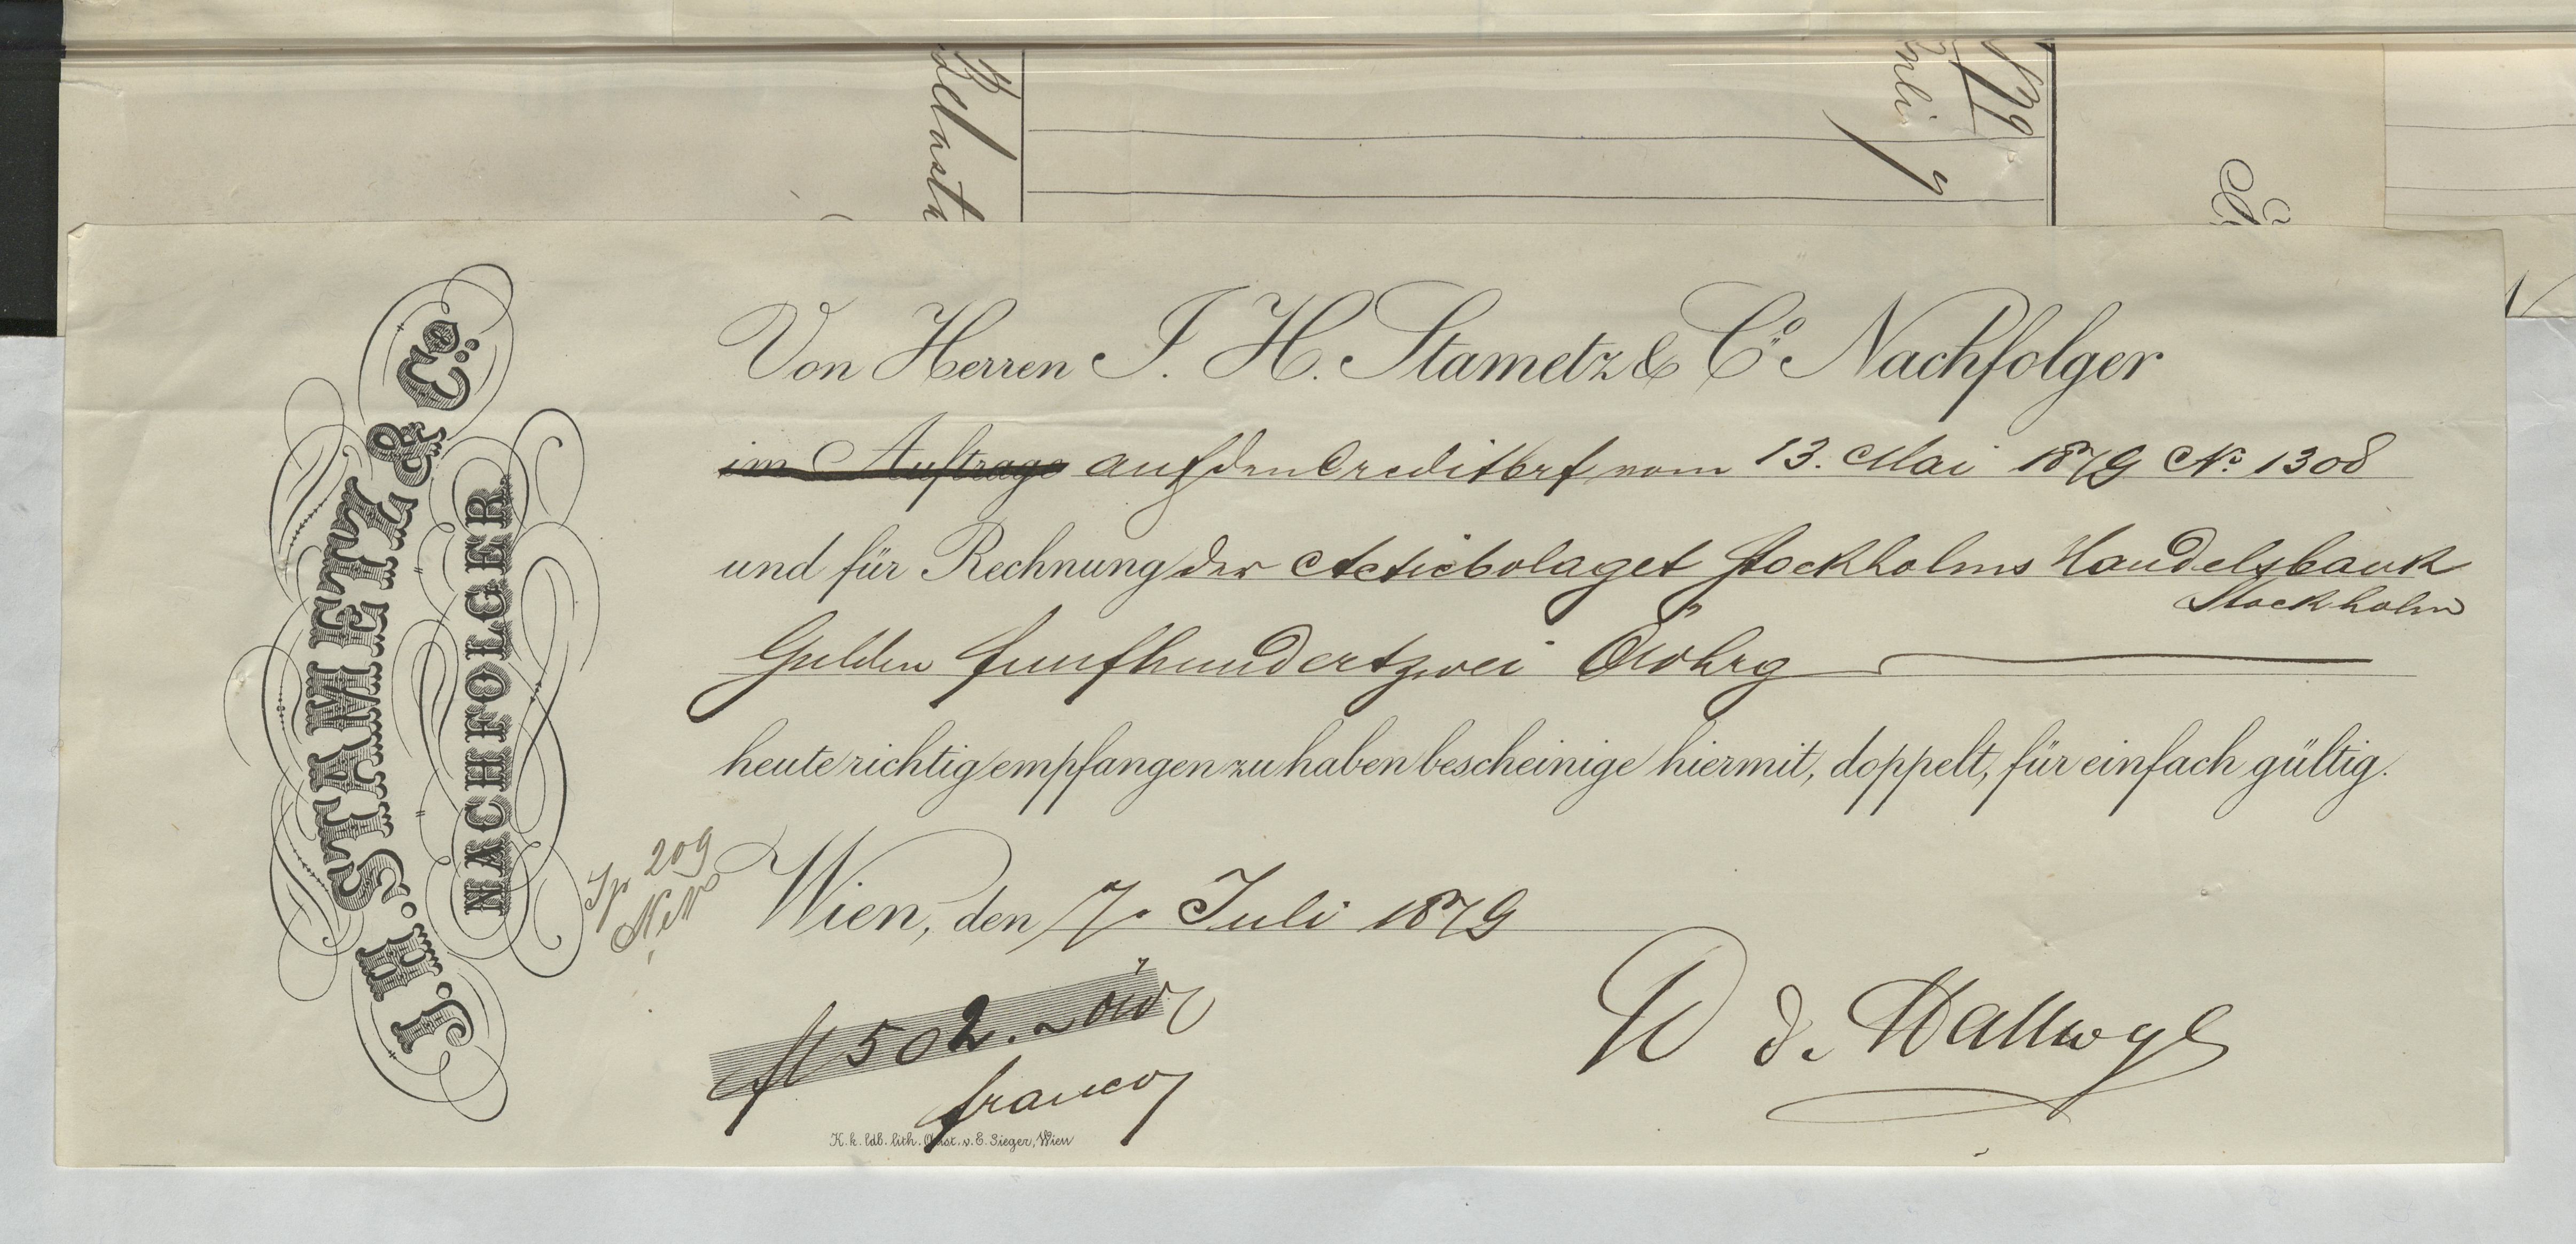 Belast
J. H. STAMETZ & Co
NACHFOLGER
Von Herren J. H. Stametz & Co Nachfolger
im Auftrage auf den Creditbrf vom 13. Mai 1879 No 1308
und für Rechnung der Actiebolaget Stockholms Handelsbank
Stockholm
Gulden fünfhundertzwei ÖWhrg
heute richtig empfangen zu haben bescheinige hiermit, doppelt, für einfach gültig.
209
Wien, den 7. Juli 1879
fl 502. ~ öW
franco
W d. Hallwyl
K. k. ldb. lith. Anst. v. E. Sieger, Wien